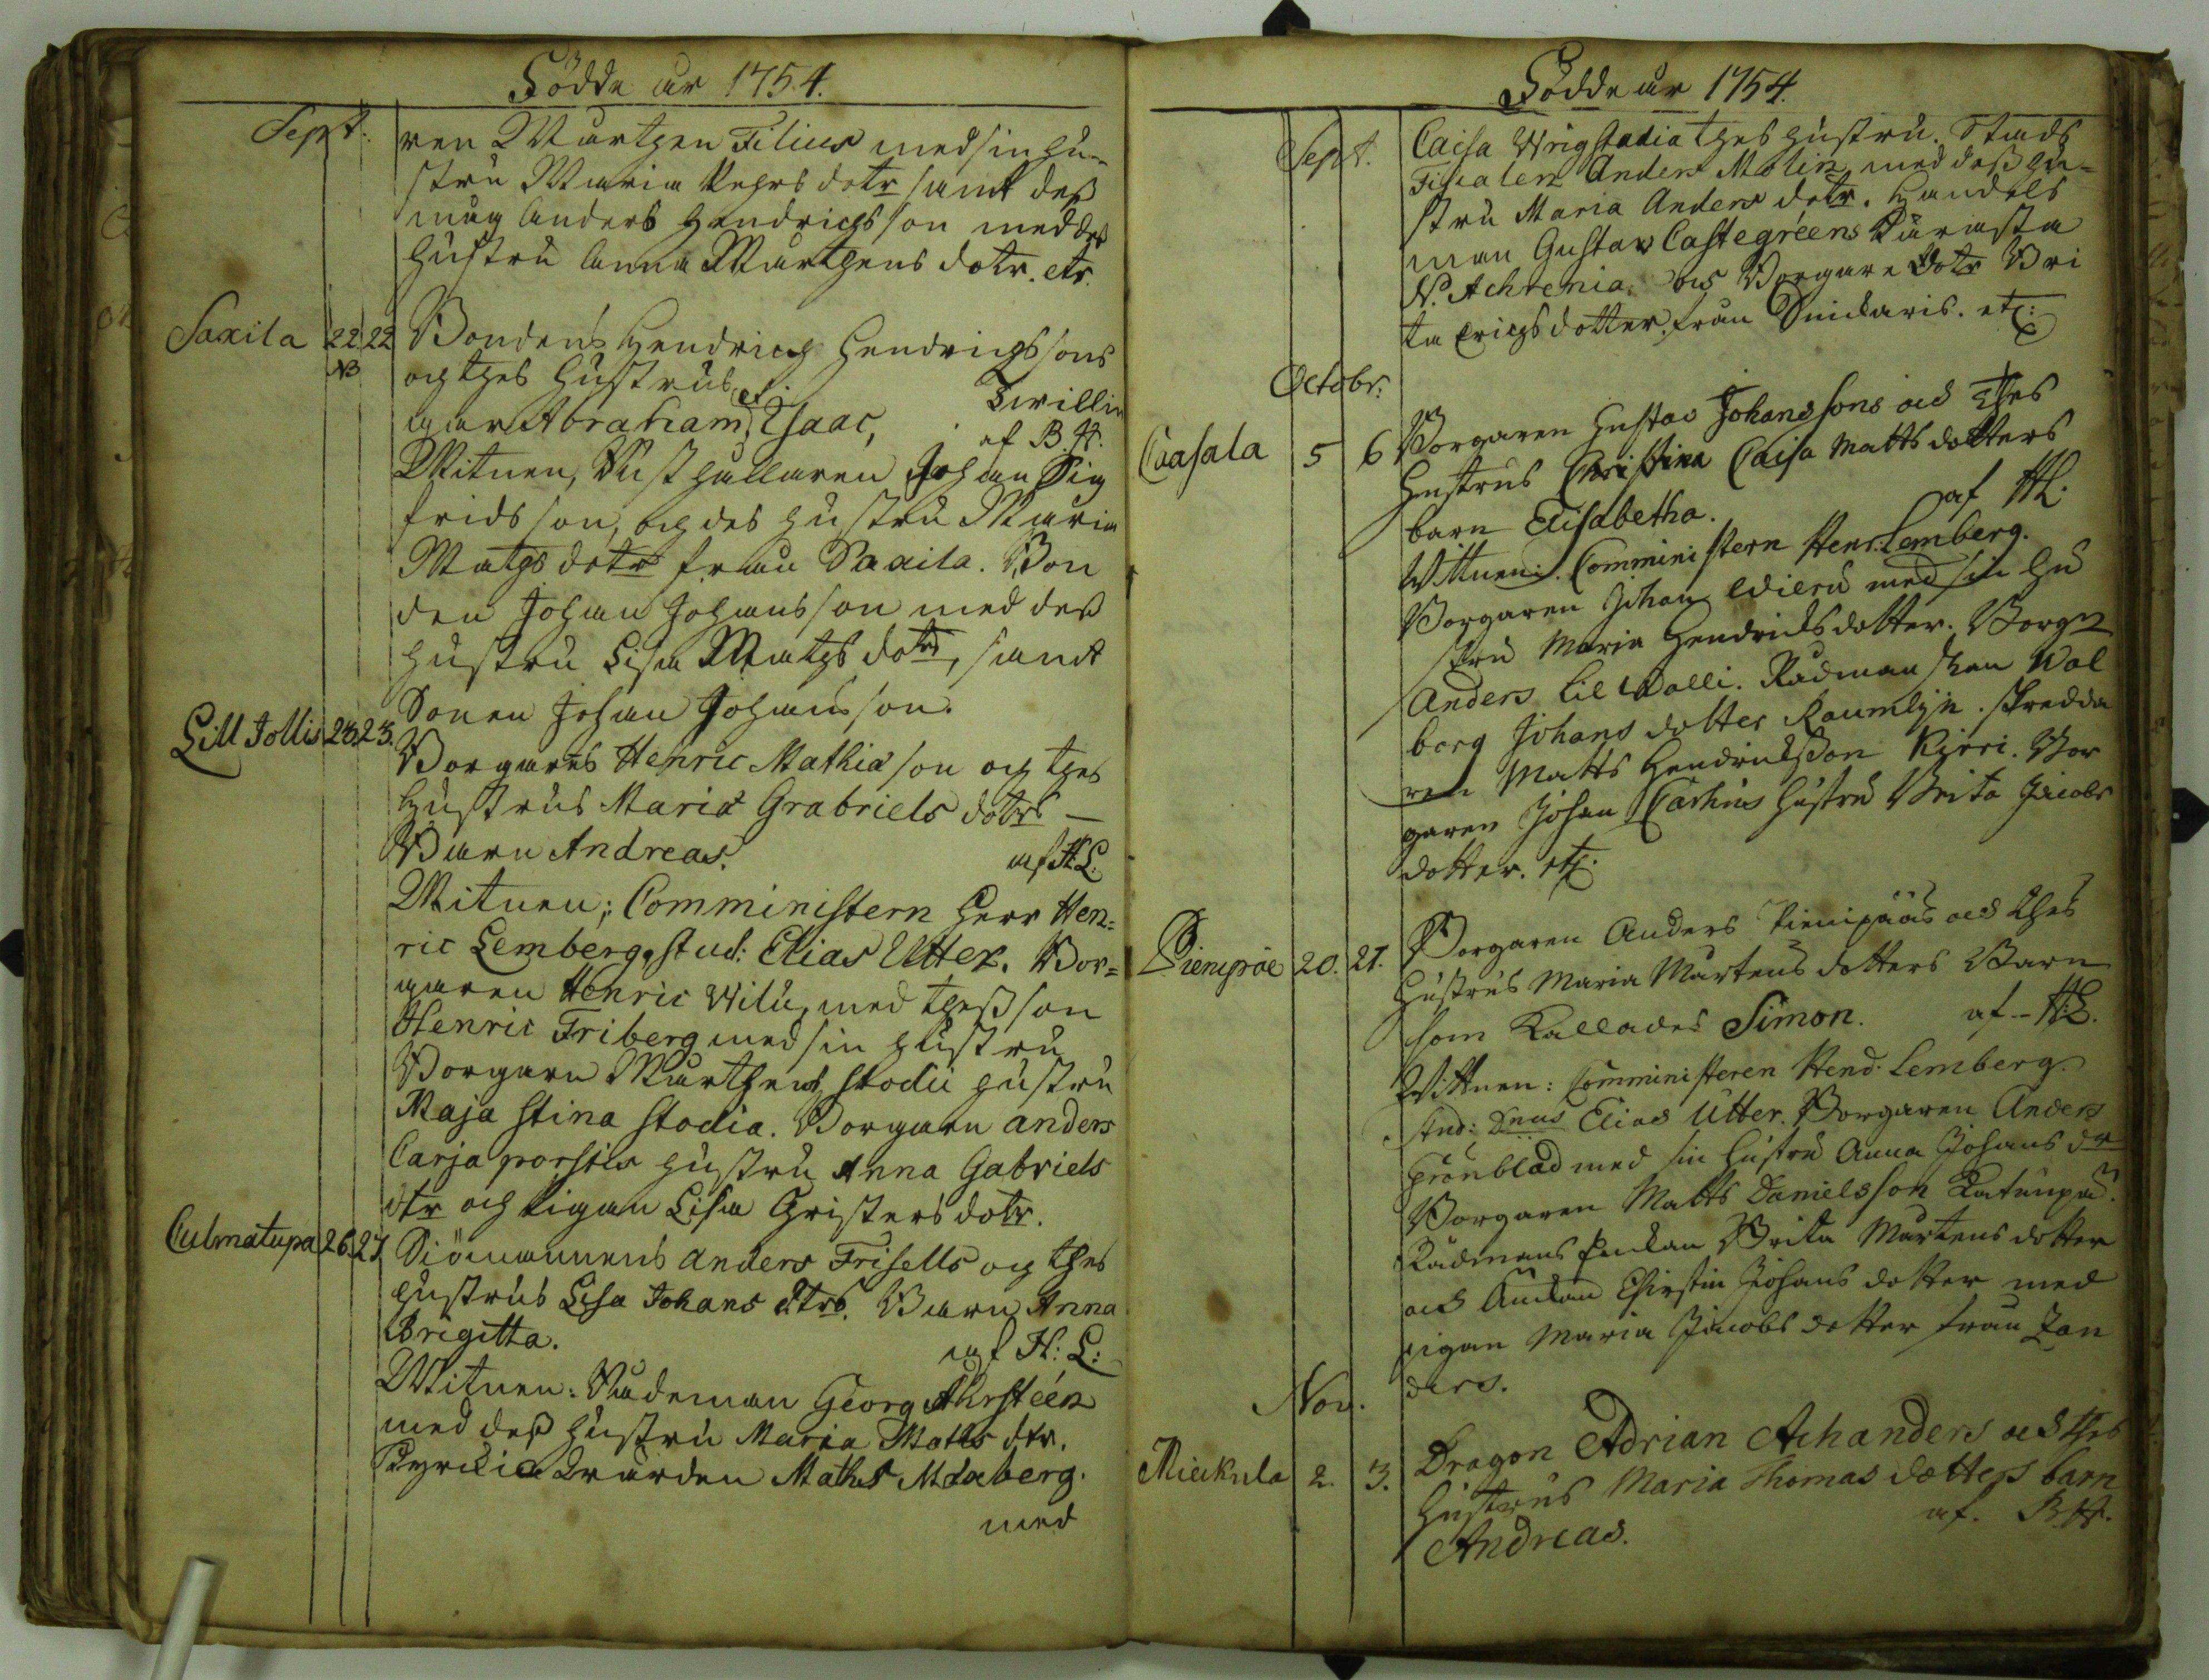 Födde år 1754.
Sept. ren Mårtzen Filius med sin hu-
stru Maria Pehrs dotr samt deß
måg Anders Hendrichsson med des
Hustru Anna Mårtzens dotr. etc.
Saxila 22 22 Bondens Hendrich Hendrichssons
NB och thes Hustrus Twillin
gar Abraham et Isaac, af B H.
Witnen, Rusthållaren Johan Sig
fridsson, och des hustru Maria
Matzdotr från Saxila. Bon
den Johan Johansson med deß
hustru Lisa Matzdotr, samt
Sonen Johan Johansson.
Lill Jollis 23. 23. Borgarens Henric Mathiæson och thes
Hustrus Maria Grabriels dotrs
Barn Andreas. af H.L.
Witnen; Comministern Herr Hen=
ric Lemberg, stud: Elias Utter. Bor=
garen Henric Wilu, med thess son
Henric Friberg med sin hustru
Borgaren Mårthens Stodii hustru
Maja Stina Stodia. Borgaren Anders
Carja porstis hustru Anna Gabriels
dtr och Pigan Lisa Christersdotr.
Culmatupa 26. 27. Siömannens Anders Frisells och thes
hustrus Lisa Johans dtrs. Barn Anna
Brigitta. af H: L:
Witnen: Rådeman Georg Ahrsteen
med deß hustru Maria Matts dtr.
Kyrckio Wärden Maths Moberg.
med
Födde år 1754.
Sept. Caisa Wrigstadia thes hustru. Stads
Fiscalen Anders Molin med deß hu=
stru Maria Anders dotr. Handels
man Gustav Castegréens Käresta
N. Achrenia. ock Borgare dotr Bri
ta Erichsdotter, från etc:
Octobr:
Caasala 5 6 Borgaren Gustav Johanssons och thes
Hustrus Christina Caisa Matts dotters
barn Elisabetha. af HL.
Vittnen: Comministern Henr: Lemberg.
Borgaren Johan med sin hu
stru Maria Hendrichsdotter. Borgn
Anders Lil Walli. Rådman skan Wal
borg Johans dotter Raumlijn. Skredda
ren Matts Hendrichsson Kirri. Bor
garen Johan Carhus hustru Brita Jacobs
dotter. etc:
Pienipäe 20. 21. Borgaren Anders Pienipääs och thes
Hustrus Maria Mårtens dotters Barn
som kallades Simon. af H:L.
Vittnen: Comministeren Hend: Lemberg.
Stud: Dnus Elias Utter. Borgaren Anders
Grönblad med sin hustru Anna Johans dr
Borgaren Matts Danielsson Katunpä.
Rådmans Enckan Brita Mårtens dotter
och Enckan Christin Johans dotter med
pigan Maria Jacobs dotter från Zan
ders.
Nov.
Mieckula 2. 3. Dragon Adrian Achanders och thes
Hustrus Maria Thomas dotters barn
Andreas. af. B.H.